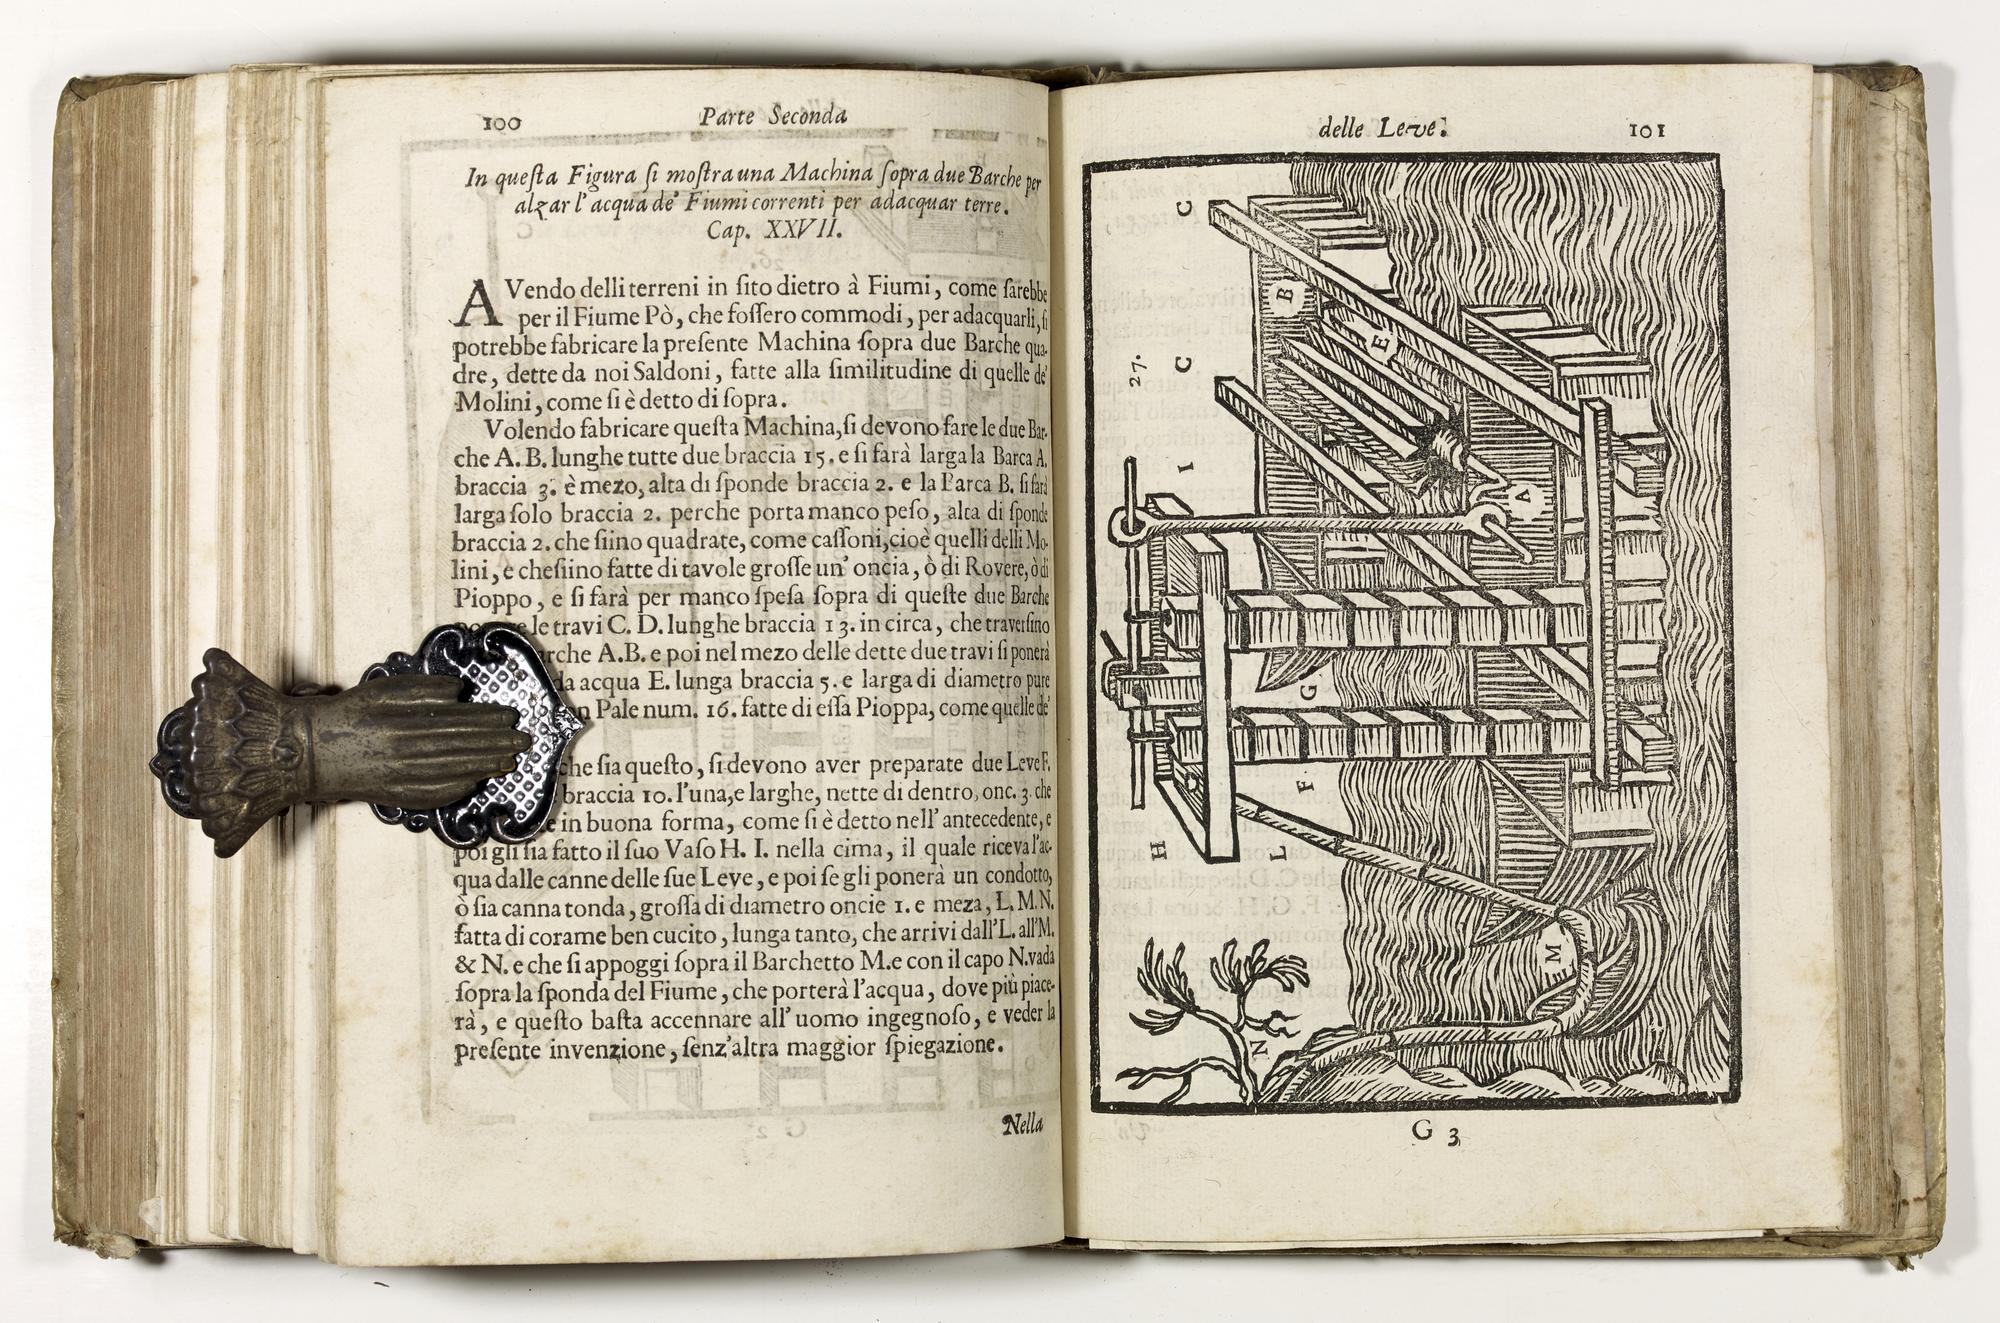 100 Parte Seconda
In queſta Figura ſi moſtra una Machina ſopra due Barche per
alzar l'acqua de' Fiumi correnti per adacquar terre.
Cap. XXVII.
AVendo delli terreni in ſito dietro à Fiumi, come ſarebbe
per il Fiume Pò, che foſſero commodi, per adacquarli, ſi
potrebbe fabricare la preſente Machina ſopra due Barche qua-
dre, dette da noi Saldoni, fatte alla ſimilitudine di quelle de'
Molini, come ſi è detto di ſopra.
Volendo fabricare queſta Machina, ſi devono fare le due Bar-
che A. B. lunghe tutte due braccia 15. e ſi farà larga la Barca A.
braccia 3. è mezo, alta di ſponde braccia 2. e la Barca B. ſi farà
larga ſolo braccia 2. perche porta manco peſo, alta di ſponde
braccia 2. che ſiino quadrate, come caſſoni, cioè quelli delli Mo-
lini, e che ſiino fatte di tavole groſſe un' oncia, ò di Rovere, ò di
Pioppo, e ſi farà per manco ſpeſa ſopra di queſte due Barche
le travi C. D. lunghe braccia 13. in circa, che traverſino
A. B. e poi nel mezo delle dette due travi ſi ponerà
acqua E. lunga braccia 5. e larga di diametro pure
Pale num. 16. fatte di eſſa Pioppa, come quelle de'
che ſia queſto, ſi devono aver preparate due Leve F.
braccia 10. l'una, e larghe, nette di dentro, onc. 3. che
in buona forma, come ſi è detto nell' antecedente, e
poi gli ſia fatto il ſuo Vaſo H. I. nella cima, il quale riceva l'ac-
qua dalle canne delle ſue Leve, e poi ſe gli ponerà un condotto,
ò ſia canna tonda, groſſa di diametro oncie 1. e meza, L. M. N.
fatta di corame ben cucito, lunga tanto, che arrivi dall'L. all'M.
& N. e che ſi appoggi ſopra il Barchetto M. e con il capo N. vada
ſopra la ſponda del Fiume, che porterà l'acqua, dove più piace-
rà, e queſto baſta accennare all' uomo ingegnoſo, e veder la
preſente invenzione, ſenz'altra maggior ſpiegazione.
Nella
delle Leve. 101
C
B
E
27.
C
I
A
G
F
H
L
M
N
G 3